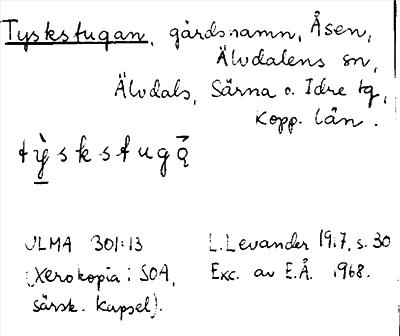 Tyskstugan, gårdsnamn, Åsen,
Älvdalens sn,
Älvdals, Särna o. Idre tg,
Kopp. län.
tỳskstugą̄
ULMA 301:13
(Xerokopia i SOA,
särsk. kapsel).
L. Levander 1917, s. 30
Exc. av E.Å. 1968.